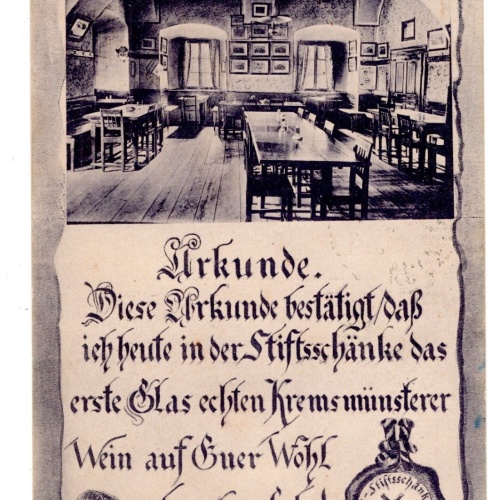 Urkunde.
Diese Urkunde bestätigt/daß
ich heute in der Stiftsschänke das
erste Glas echten Kremsmünsterer
Wein auf Euer Wohl
Stiftsschän